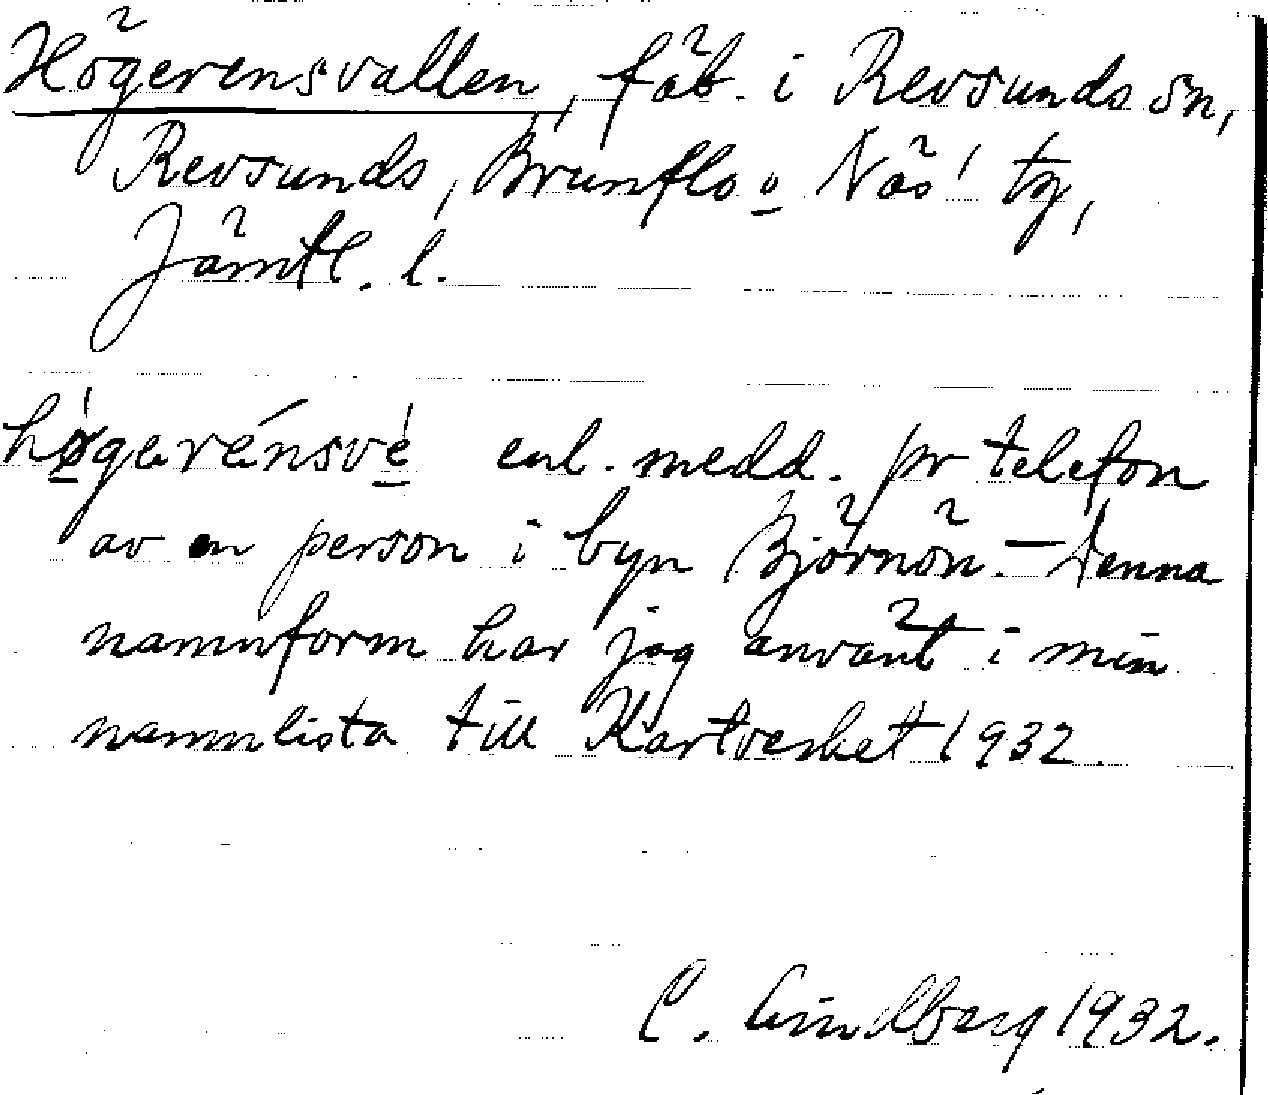 Högerensvallen, fäb. i Revsunds sn,
Revsunds, Brunflo o Näs' tg,
Jämtl. l.
høgarénsvé enl. medd. pr telefon
av en person i byn Björnön. – Denna
namnform har jag använt i min
namnlista till Kartverket 1932.
C. Lindberg 1932.